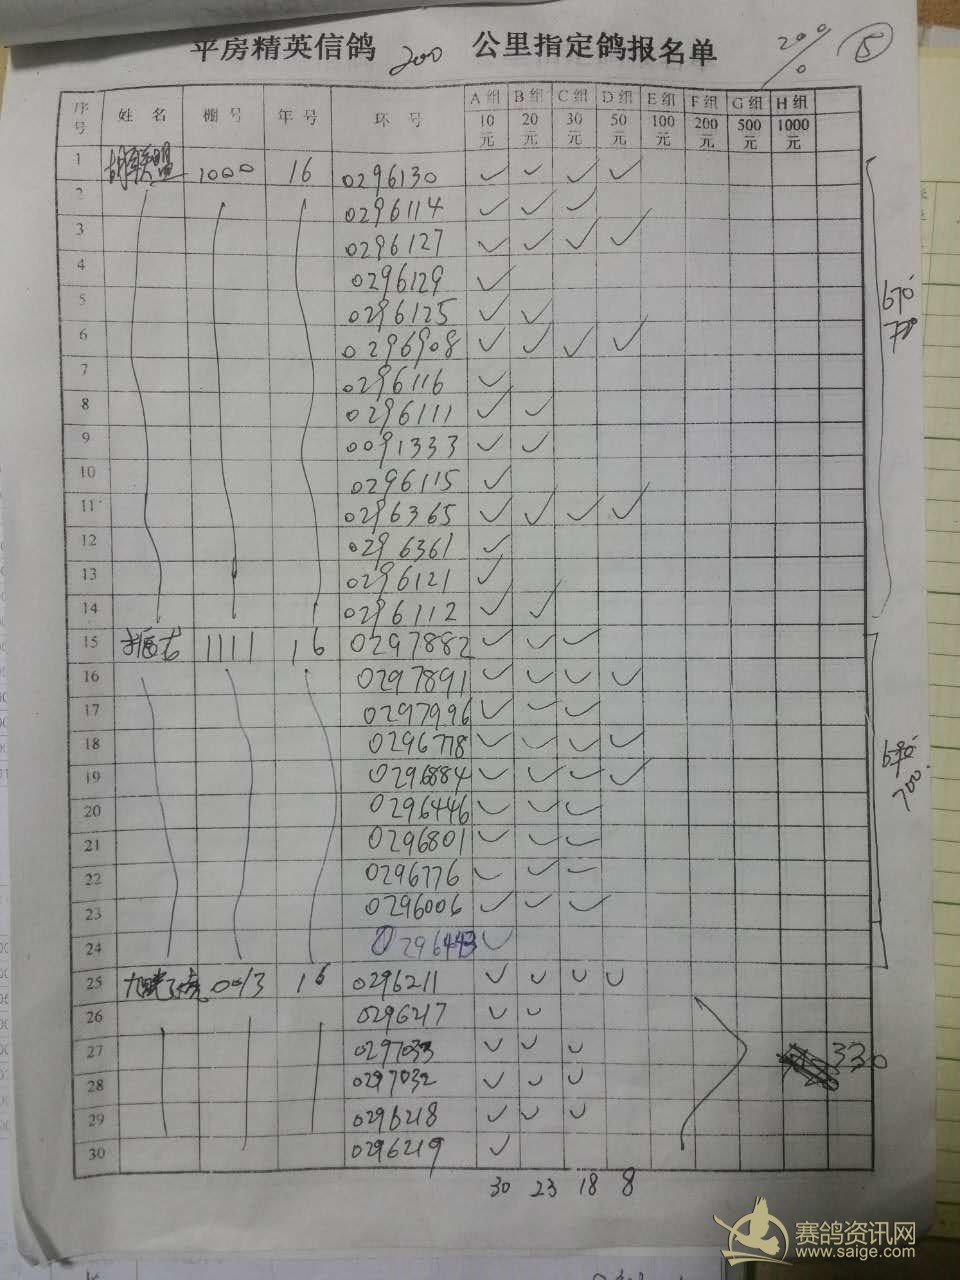 平房精英信鸽 200 公里指定鸽报名单
200/0 ⑤
序号 姓 名 棚 号 年 号 环 号 A 组 10 元 B 组 20 元 C 组 30 元 D 组 50 元 E 组 100 元 F 组 200 元 G 组 500 元 H 组 1000 元
1 联盟 1000 16 0296130 ✓ ✓ ✓ ✓
2 0296114 ✓ ✓ ✓
3 0296127 ✓ ✓ ✓ ✓
4 0296129 ✓
5 0296125 ✓ ✓
6 0296908 ✓ ✓ ✓ ✓
7 0296116 ✓
8 0296111 ✓ ✓
9 0091333 ✓ ✓
10 0296115 ✓
11 0296365 ✓ ✓ ✓ ✓
12 0296361 ✓
13 0296121 ✓
14 0296112 ✓ ✓
670
15 1111 16 0297882 ✓ ✓ ✓
16 0297891 ✓ ✓ ✓ ✓
17 0297996 ✓ ✓ ✓
18 0296778 ✓ ✓ ✓ ✓
19 0296884 ✓ ✓ ✓ ✓
20 0296446 ✓ ✓ ✓
21 0296801 ✓ ✓ ✓
22 0296776 ✓ ✓ ✓
23 0296006 ✓ ✓ ✓
24 0296443 ✓
700
25 0013 16 0296211 ✓ ✓ ✓ ✓
26 0296217 ✓ ✓
27 0297033 ✓ ✓ ✓
28 0297032 ✓ ✓ ✓
29 0296218 ✓ ✓ ✓
30 0296219 ✓
330
30 23 18 8
赛鸽资讯网
www.saige.com